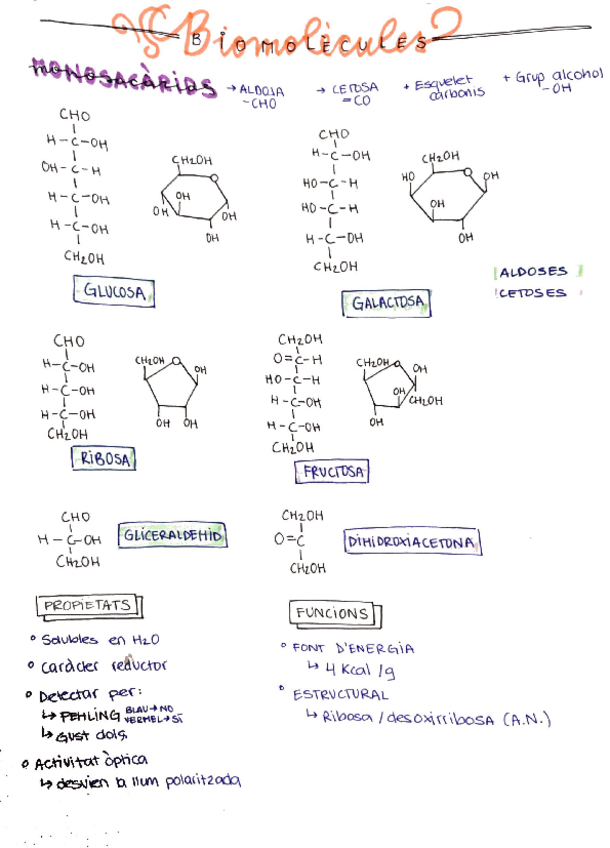 Biomolècules
BIOMOLÈCULES
MONOSACÀRIDS → ALDOSA -CHO → CETOSA =CO + Esquelet carbonis + Grup alcohol -OH
CHO
H-C-OH
OH-C-H
H-C-OH
H-C-OH
CH2OH
CH2OH
O
OH
OH
OH
OH
GLUCOSA
CHO
H-C-OH
HO-C-H
HO-C-H
H-C-OH
CH2OH
CH2OH
HO
O
OH
OH
OH
GALACTOSA
ALDOSES
CETOSES
CHO
H-C-OH
H-C-OH
H-C-OH
CH2OH
CH2OH
O
OH
OH OH
RIBOSA
CH2OH
O=C-H
HO-C-H
H-C-OH
H-C-OH
CH2OH
CH2OH
O
OH
OH
CH2OH
OH
FRUCTOSA
CHO
H-C-OH
CH2OH
GLICERALDEHID
CH2OH
O=C
CH2OH
DIHIDROXIACETONA
PROPIETATS
° Solubles en H2O
° Caràcter reductor
° Detectar per:
↳ FEHLING BLAU→NO VERMEL→SÍ
↳ Gust dolç
° Activitat òptica
↳ desvien la llum polaritzada
FUNCIONS
° FONT D'ENERGIA
↳ 4 Kcal/g
° ESTRUCTURAL
↳ Ribosa/desoxirribosa (A.N.)